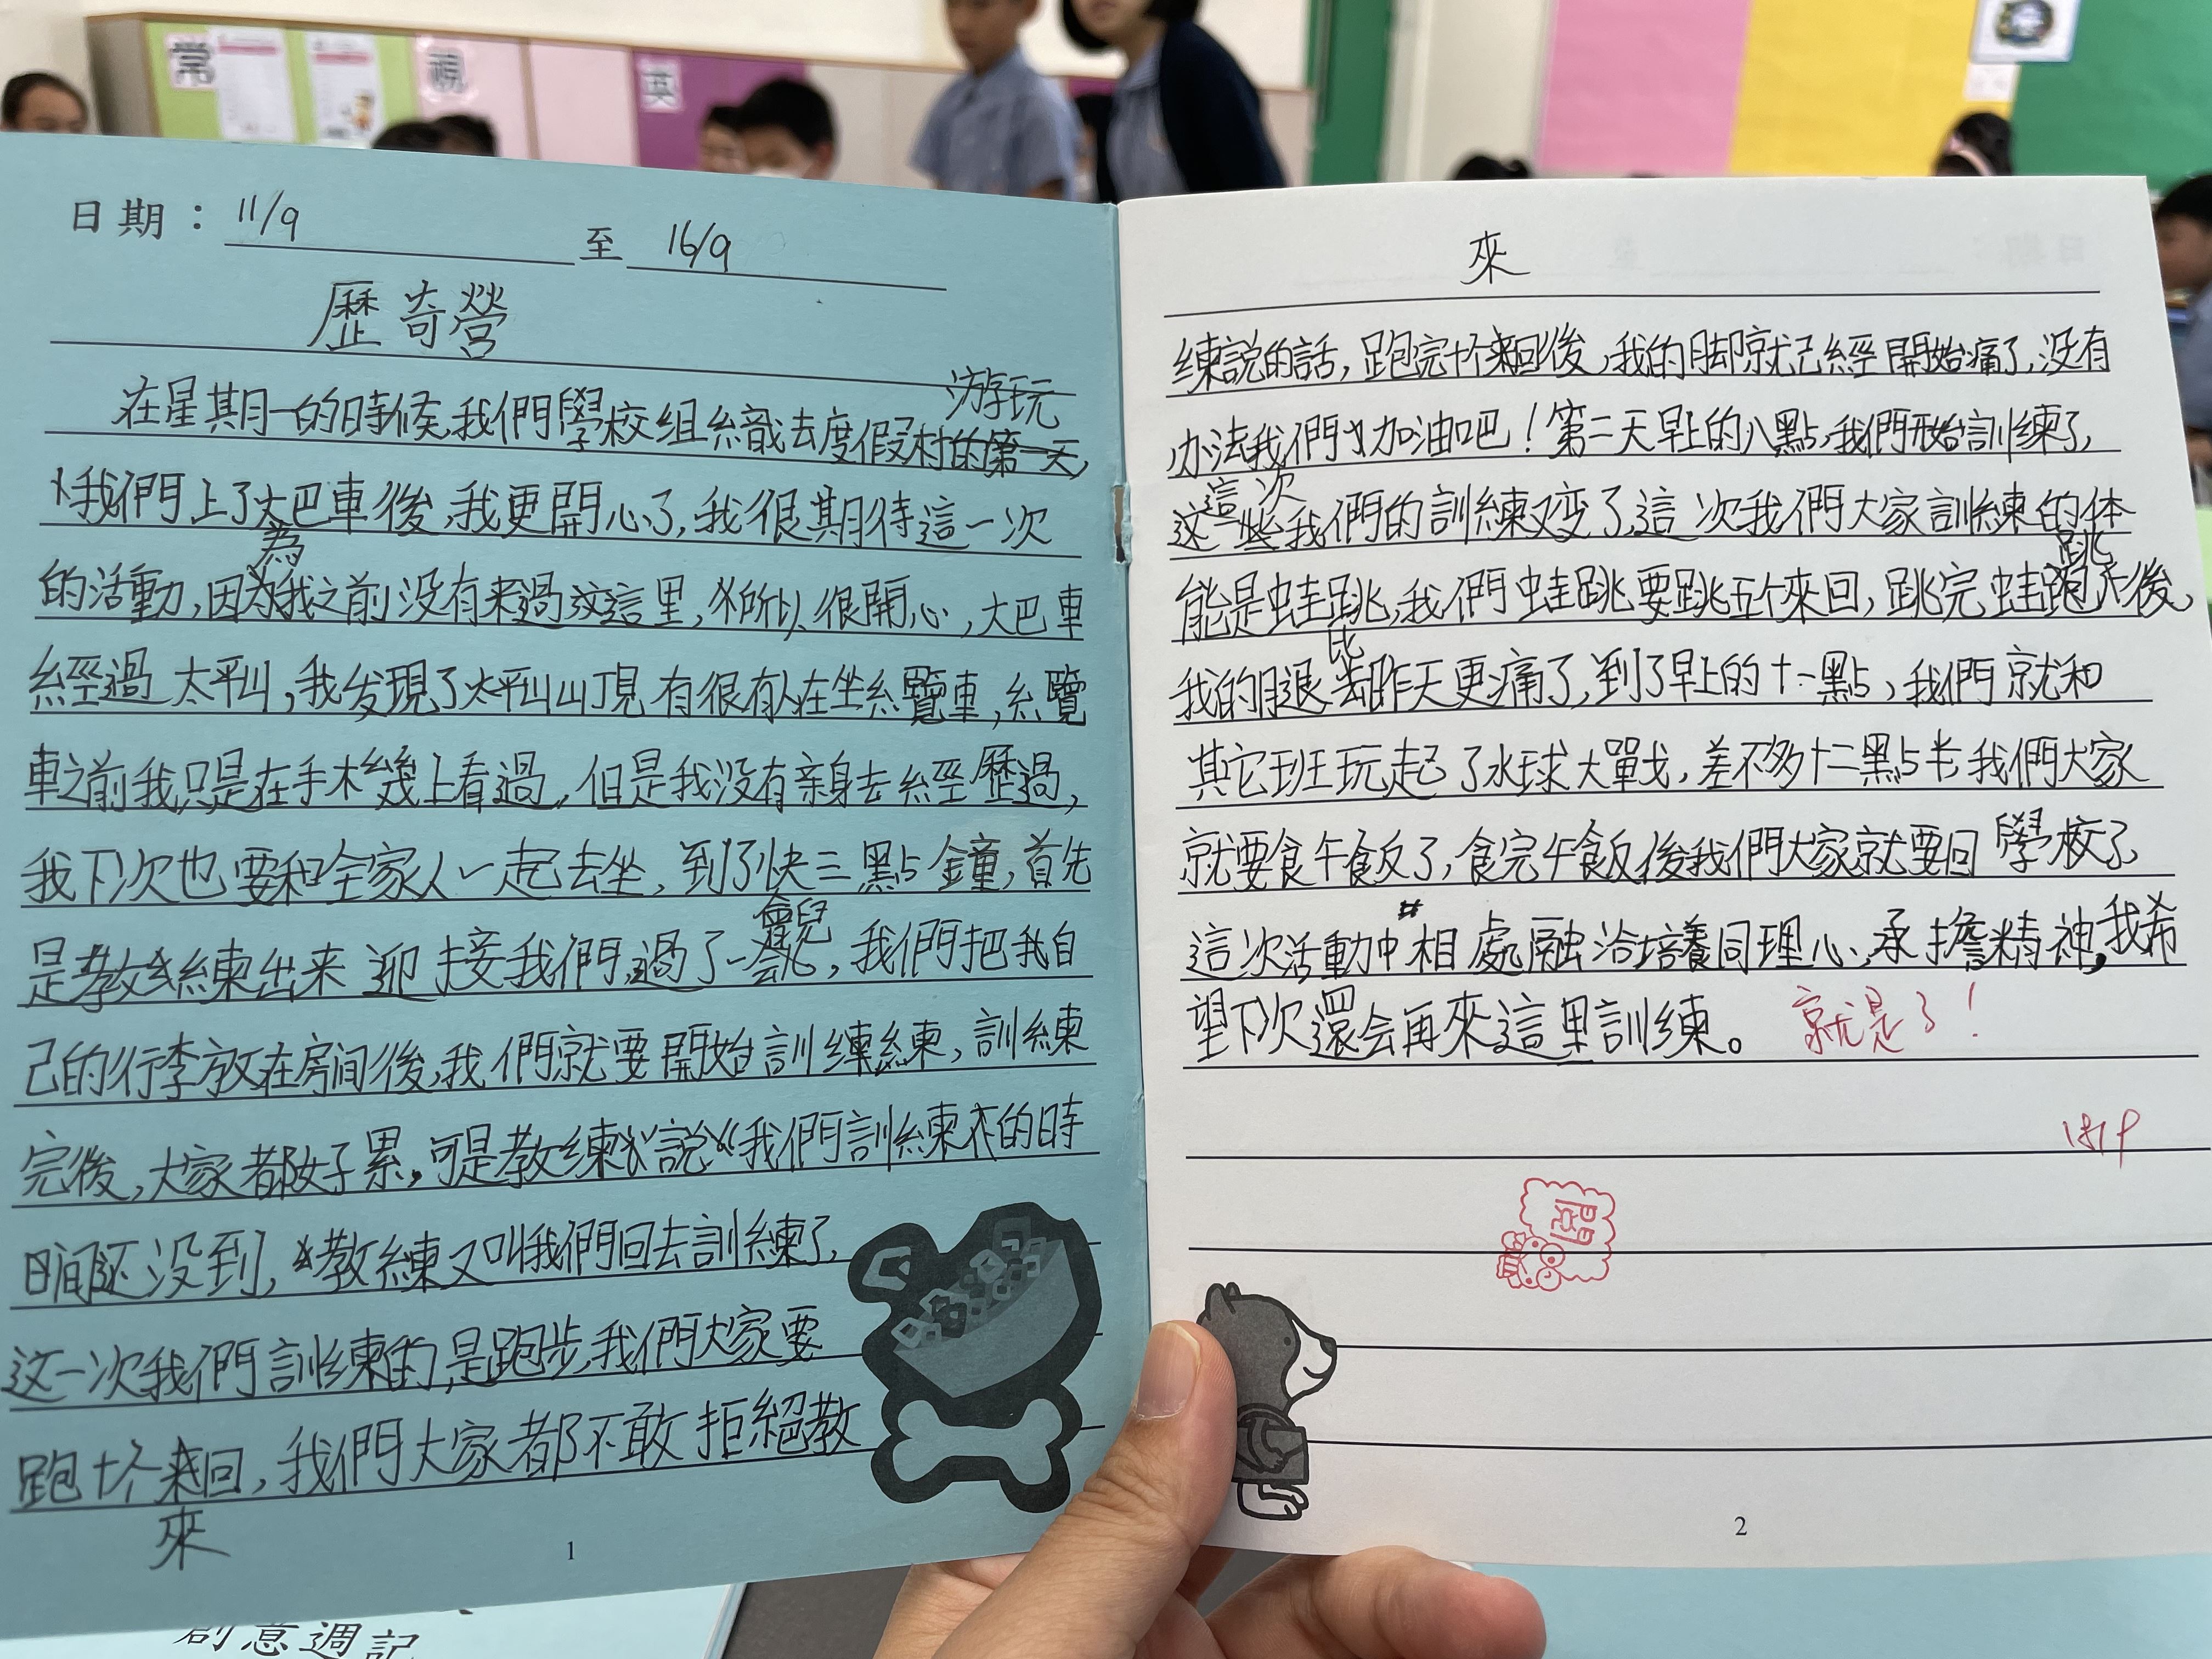 常
視
英
日期：11/9 至 16/9
歷奇營
游玩
在星期一的時候,我們學校组織去度假村的第一天,
我們上了大巴車後,我更開心了,我很期待這一次
為
的活動,因为我之前没有来過这這里,所以很開心,大巴車
經過太平山,我发現了太平山山頂有很有人在坐糸覽車,糸覽
車之前我只是在手木幾上看過,但是我没有亲身去經歷過,
我下次也要和全家人一起去坐,到了快三點鐘,首先
會兒
是教練出来迎接我們,過了一会儿,我們把我自
己的行李放在房间後,我們就要開始訓練練,訓練
完後,大家都好累,可是教练說“我們訓練的時
間还没到,教練又叫我們回去訓練了,
这一次我們訓練的,是跑步,我們大家要
跑十个来回,我們大家都不敢拒絕教
來
1
來
練說的話,跑完十个来回後,我的脚就已經開始痛了,没有
办法我們加油吧!第二天早上的八點,我們开始訓練了,
這次
这些我們的訓練又变了,這次我們大家訓練的体
跳
能是蛙跳,我們蛙跳要跳五个來回,跳完蛙跑後,
比
我的腿去昨天更痛了,到了早上的十一點,我們就和
其它班玩起了水球大戰,差不多十二點半我們大家
就要食午飯了,食完午飯後我們大家就要回學校了
這次活動中相處融洽培養同理心、承擔精神,我希
望下次還会再來這里訓練。 就是了!
18/9
閱
2
創意週記